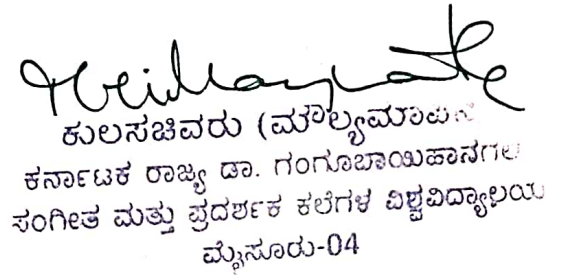 ಕುಲಸಚಿವರು (ಮೌಲ್ಯಮಾಪನ
ಕರ್ನಾಟಕ ರಾಜ್ಯ ಡಾ. ಗಂಗೂಬಾಯಿಹಾನಗಲ
ಸಂಗೀತ ಮತ್ತು ಪ್ರದರ್ಶಕ ಕಲೆಗಳ ವಿಶ್ವವಿದ್ಯಾಲಯ
ಮೈಸೂರು-04